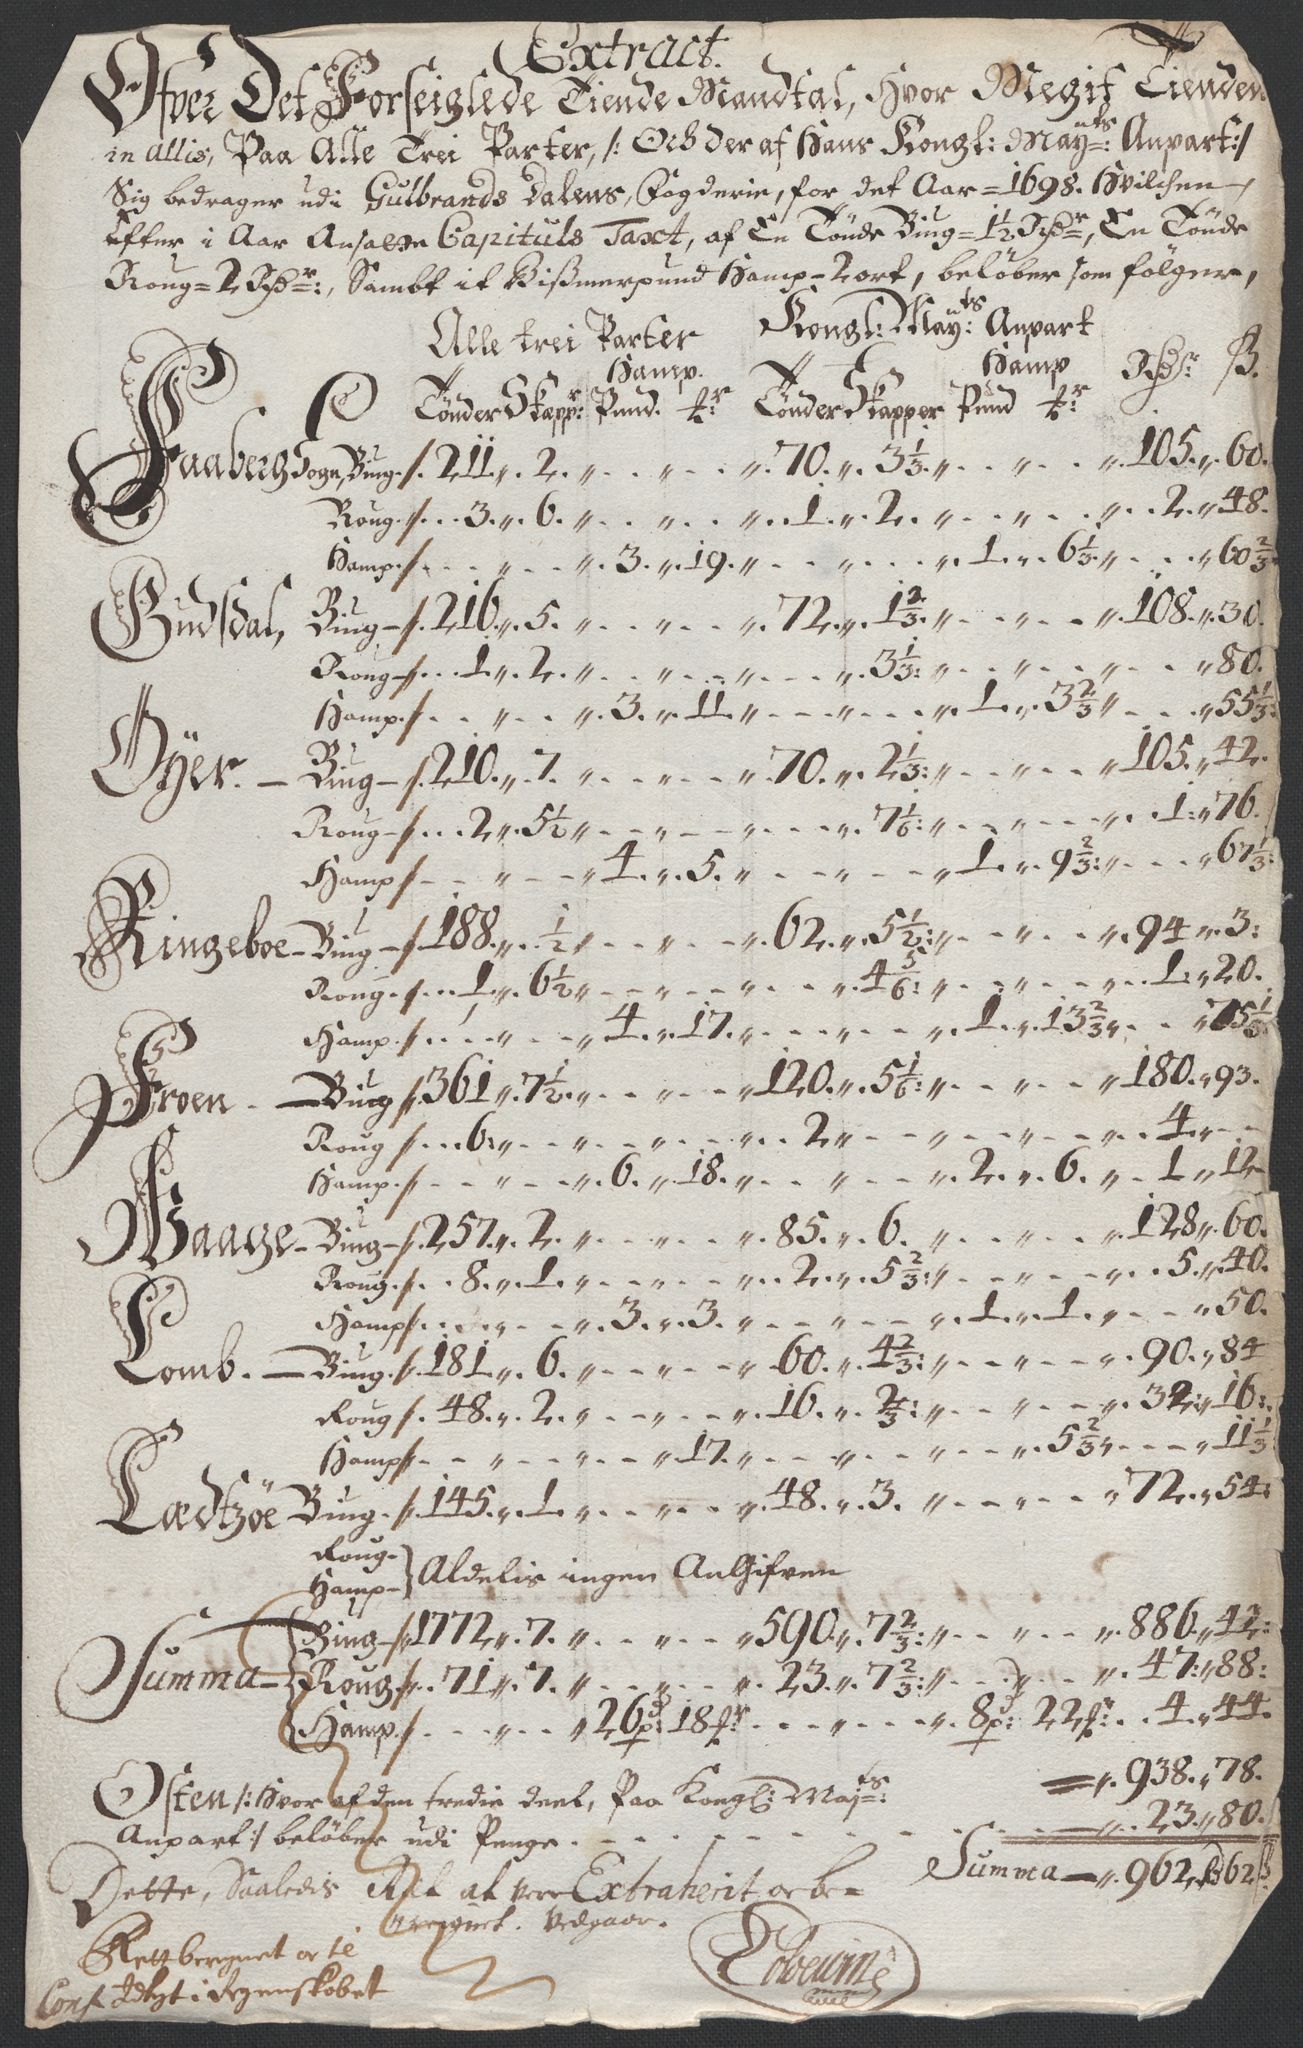 Extract.
Ofver Det Forseiglede Tiende Mandtal, Hvor Megit Tienden
in allis, Paa Alle Trei Parter, /: Och der af Hans Kongl: Mayts: Anpart :/
Sig bedrager udi Gulbrands Dalens Fogderie, for det Aar = 1698. Hvilchen
efter i Aar Ansatte Capituls Taxt, af En Tönde Biug = 1½ Rdr, En Tönde
Roug = 2 Rdr:, Sambt it Bißmerpund Hamp = 2 ort, belöber som fölger,
Alle trei Parter Kongl: Mayts: Anpart
Hamp. Hamp Rdr ß.
Tönder Skapr: Pund. Tönder Skapper Pund
Faaberg Sogn, Biug. /. 211 „ 2. „ „ „ 70. „ 3⅓. „ „ „ 105. „ 60.
Roug. /. 3. „ 6. „ „ „ 1. „ 2. „ „ „ 2. „ 48.
Hamp. /. „ „ 3. „ 19. „ „ „ 1. „ 6⅓. „ „ 60⅔.
Gudsdal, Biug /. 216. „ 5. „ „ „ 72. „ 1⅔. „ „ „ 108. „ 30.
Roug /. 1. „ 2. „ „ „ „ 3⅓: „ „ „ „ 80.
Hamp. /. „ „ 3. „ 11. „ „ „ 1. „ 3⅔ „ „ 55⅓:
Öyer. Biug /. 210. „ 7. „ „ „ 70. „ 2⅓: „ „ „ 105. „ 42.
Roug /. 2. „ 5½ „ „ „ „ 7⅙: „ „ „ 1: „ 76.
Hamp /. „ 4. „ 5. „ „ „ 1. „ 9⅔: „ „ 67⅓:
Ringeboe Biug /. 188. „ ½ „ „ „ 62. „ 5½: „ „ „ 94 „ 3:
Roug. /. 1. „ 6½ „ „ „ „ 4⅚: „ „ „ 1: „ 20.
Hamp. /. „ „ 4. „ 17. „ „ „ 1. „ 13⅔ „ „ 75⅓
Froen Biug /. 361 „ 7½. „ „ „ 120. „ 5⅙: „ „ „ 180. „ 93.
Roug /. 6: „ „ „ „ 2 „ „ „ „ 4. „
Hamp. /. „ „ 6. „ 18. „ „ „ 2. „ 6. „ 1 „ 12
Waage Biug /. 257. „ 2. „ „ „ 85. „ 6. „ „ „ 128 „ 60.
Roug. /. 8. „ 1. „ „ „ 2. „ 5⅔: „ „ „ 5. „ 40.
Hamp /. „ „ 3. „ 3. „ „ „ 1. „ 1. „ „ 50.
Lomb. Biug. /. 181. „ 6. „ „ „ 60. „ 4⅔: „ „ „ 90. „ 84
Roug /. 48. „ 2. „ „ „ 16. „ ⅔: „ „ „ 32: „ 16:
Hamp /. „ „ „ 17. „ „ „ „ 5⅔ „ „ 11⅓
Lædtzöe Biug. /. 145. „ 1. „ „ „ 48. „ 3. „ „ „ 72. „ 54:
Roug.
Hamp } Aldelis ingen Angifven
Summa { Biug /. 1772 „ 7. „ „ „ 590. „ 7⅔: „ „ „ 886. „ 42:
Roug /. 71 „ 7. „ „ „ 23. „ 7⅔: „ „ „ 47: „ 88:
Hamp. /. „ „ 26 pd: 18 „ „ 8 pd: 22 4 „ 44.
„ 938. „ 78.
Osten /: Hvor af den tredie deel, Paa Kongl: Majts:
Anpart :/ belöber udi Penge „ 23. „ 80.
Summa „ 962 Rdr 62 ß
Dette, Saaledis Ret at vere Extraherit oc be=
reignet. Vedgaar.
Rett beregnet oc
i Regenskobet